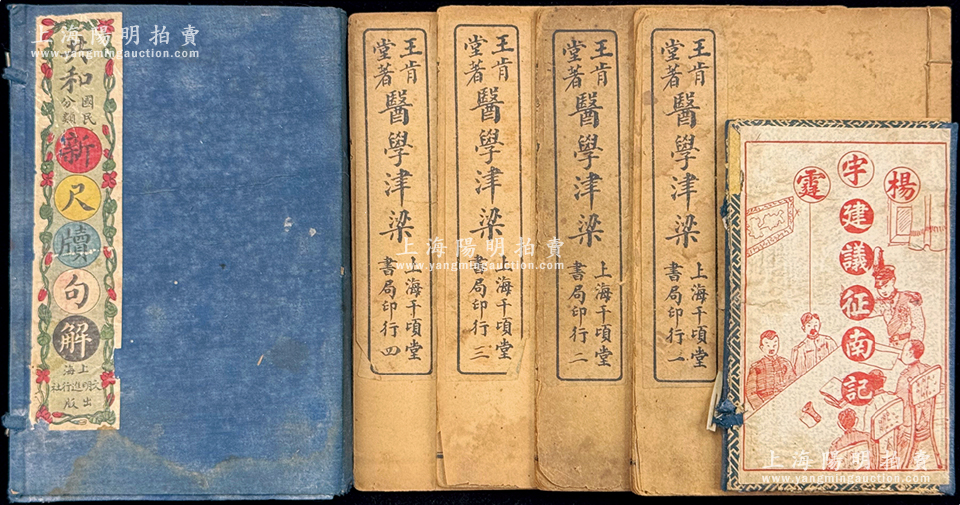 上海陽明拍賣
www.yangmingauction.com
共和
國民
分類
新尺牘句解
上海
文明進行社
出版
王肯
堂著
醫學津梁
上海千頃堂
書局印行
四
王肯
堂著
醫學津梁
上海千頃堂
書局印行
三
王肯
堂著
醫學津梁
上海千頃堂
書局印行
二
王肯
堂著
醫學津梁
上海千頃堂
書局印行
一
楊宇霆
建議征南記
上海陽明拍賣
www.yangmingauction.com
上海陽明拍賣
www.yangmingauction.com